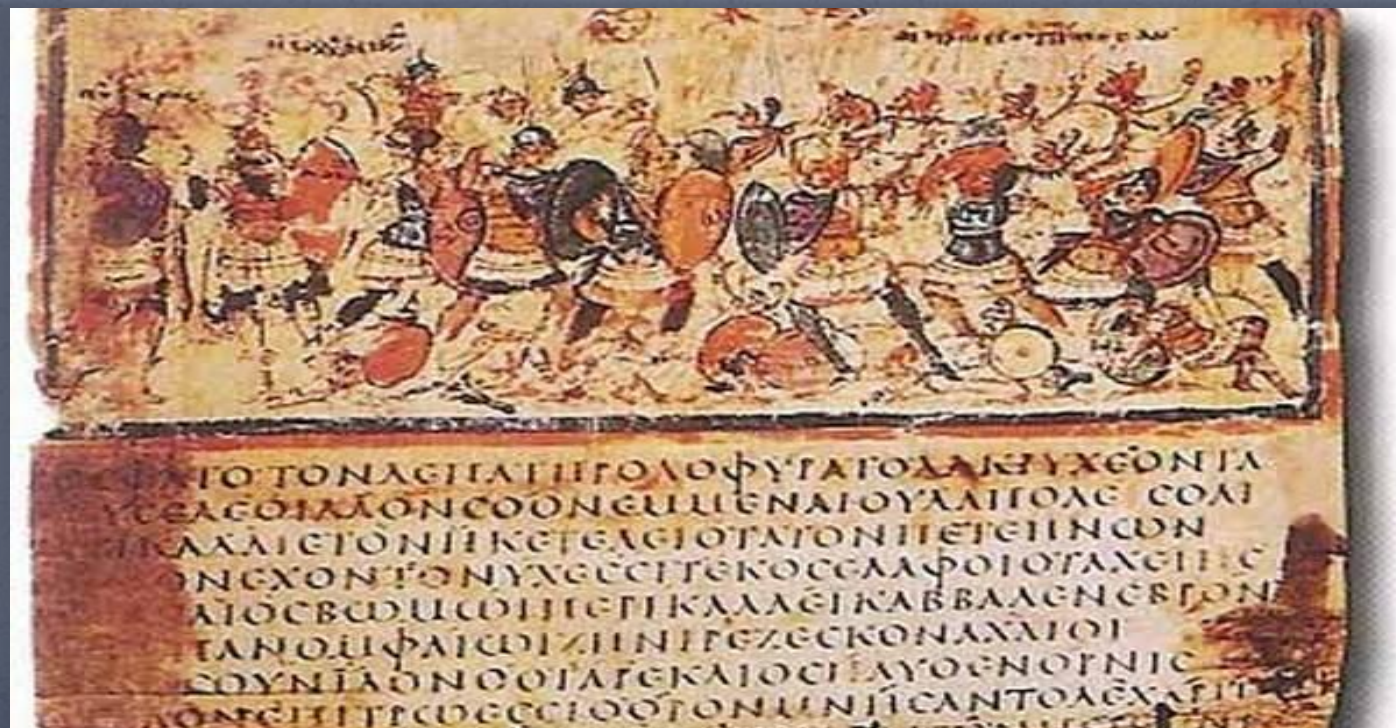 ΦΑΤΟΤΟΝΔΕΠΑΤΗΡΟΛΟΦΥΡΑΤΟΔΑΚΡΥΧΕΟΝΤΑ
ΥϹΕΔΕΟΙΛΑΟΝϹΟΟΝΕΜΜΕΝΑΙΟΥΔΑΠΟΛΕϹΘΑΙ
ΙΚΑΔΑΙΕΤΟΝΗΚΕΤΕΛΕΙΟΤΑΤΟΝΠΕΤΕΗΝΩΝ
ΟΝΕΧΟΝΤΟΝΥΧΕϹϹΙΤΕΚΟϹΕΛΑΦΟΙΟΤΑΧΕΙΗϹ
ΔΙΟϹΒΩΜΩΙΠΕΡΙΚΑΛΛΕΙΚΑΒΒΑΛΕΝΕΒΡΟΝ
ΠΑΝΟΜΦΑΙΩΙΖΗΝΙΡΕΖΕϹΚΟΝΑΧΑΙΟΙ
ϹΟΥΝΙΔΟΝΘΟΤΑΡΕΚΔΙΟϹΗΛΥΘΕΝΟΡΝΙϹ
ΛΟΝΕΠΙΤΡΩΕϹϹΙΘΟΡΟΝΜΝΗϹΑΝΤΟΔΕΧΑΡ